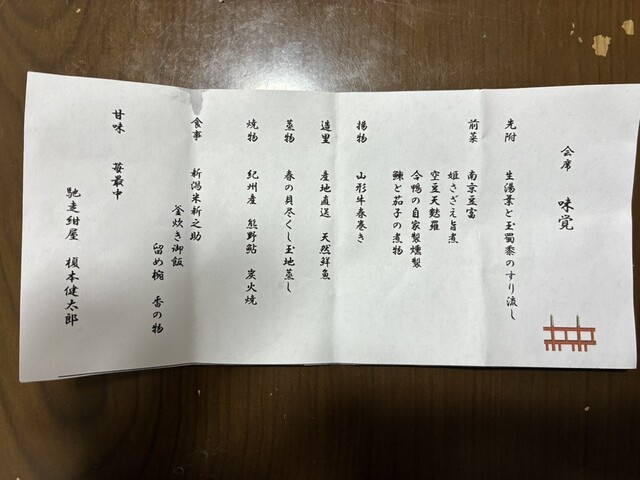 会席 味覚
先附 生湯葉と玉蜀黍のすり流し
前菜 南京豆富
姫さざえ旨煮
空豆天麩羅
合鴨の自家製燻製
鰊と茄子の煮物
揚物 山形牛春巻き
造里 産地直送 天然鮮魚
蒸物 春の貝尽くし玉地蒸し
焼物 紀州産 熊野鮎 炭火焼
食事 新潟米新之助
釜炊き御飯
留め椀 香の物
甘味 苺最中
馳走紺屋 榎本健太郎